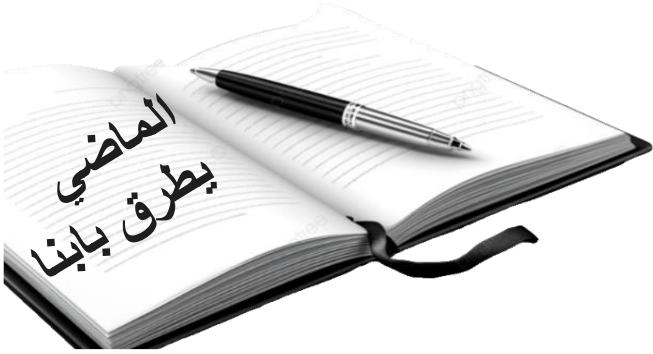 الماضي
يطرق بابنا